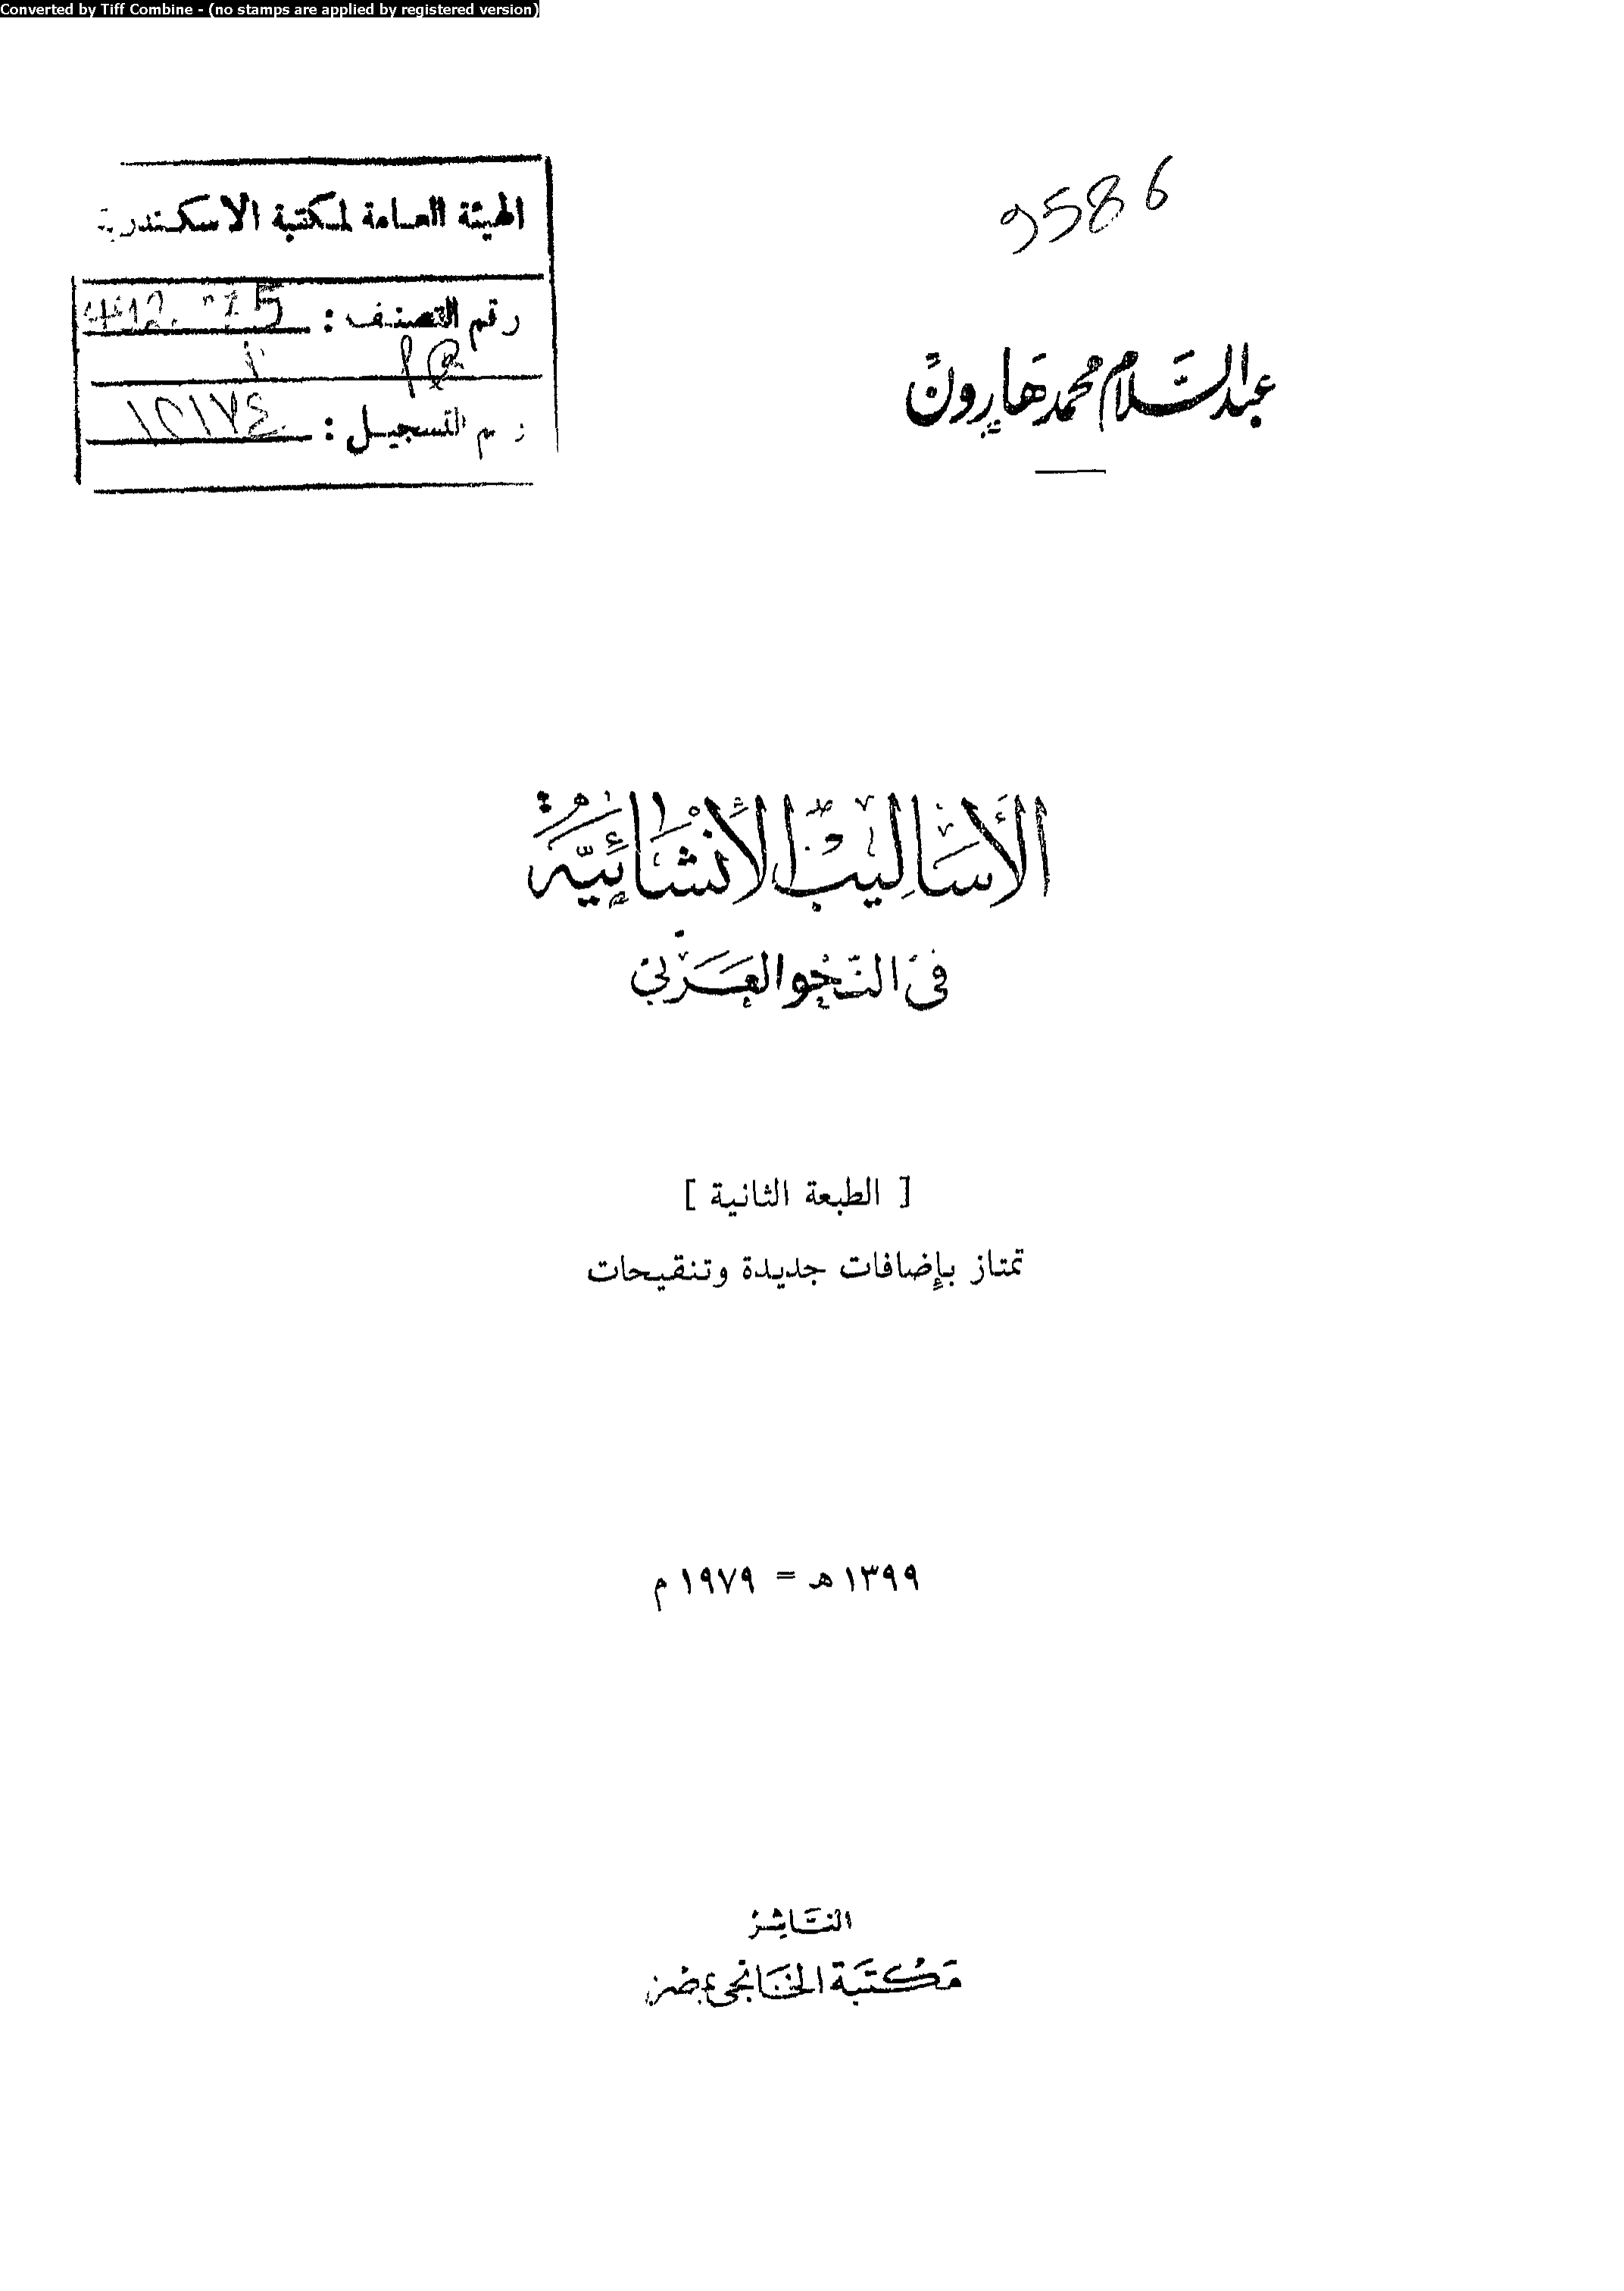 Converted by Tiff Combine - (no stamps are applied by registered version)
9586
الهيئة العامة لمكتبة الاسكندرية
رقم التصنيف :
التسجيل : ١٢١٧٤
عبد السَّلام محمد هَارون
الأسَاليبُ الإنشَائيَّة
فى النَّحو العَرَبى
[ الطبعة الثانية ]
تمتاز بإضافات جديدة وتنقيحات
١٣٩٩ هـ = ١٩٧٩ م
النَّاشِر
مَكتَبَة الخَانجى بمصر